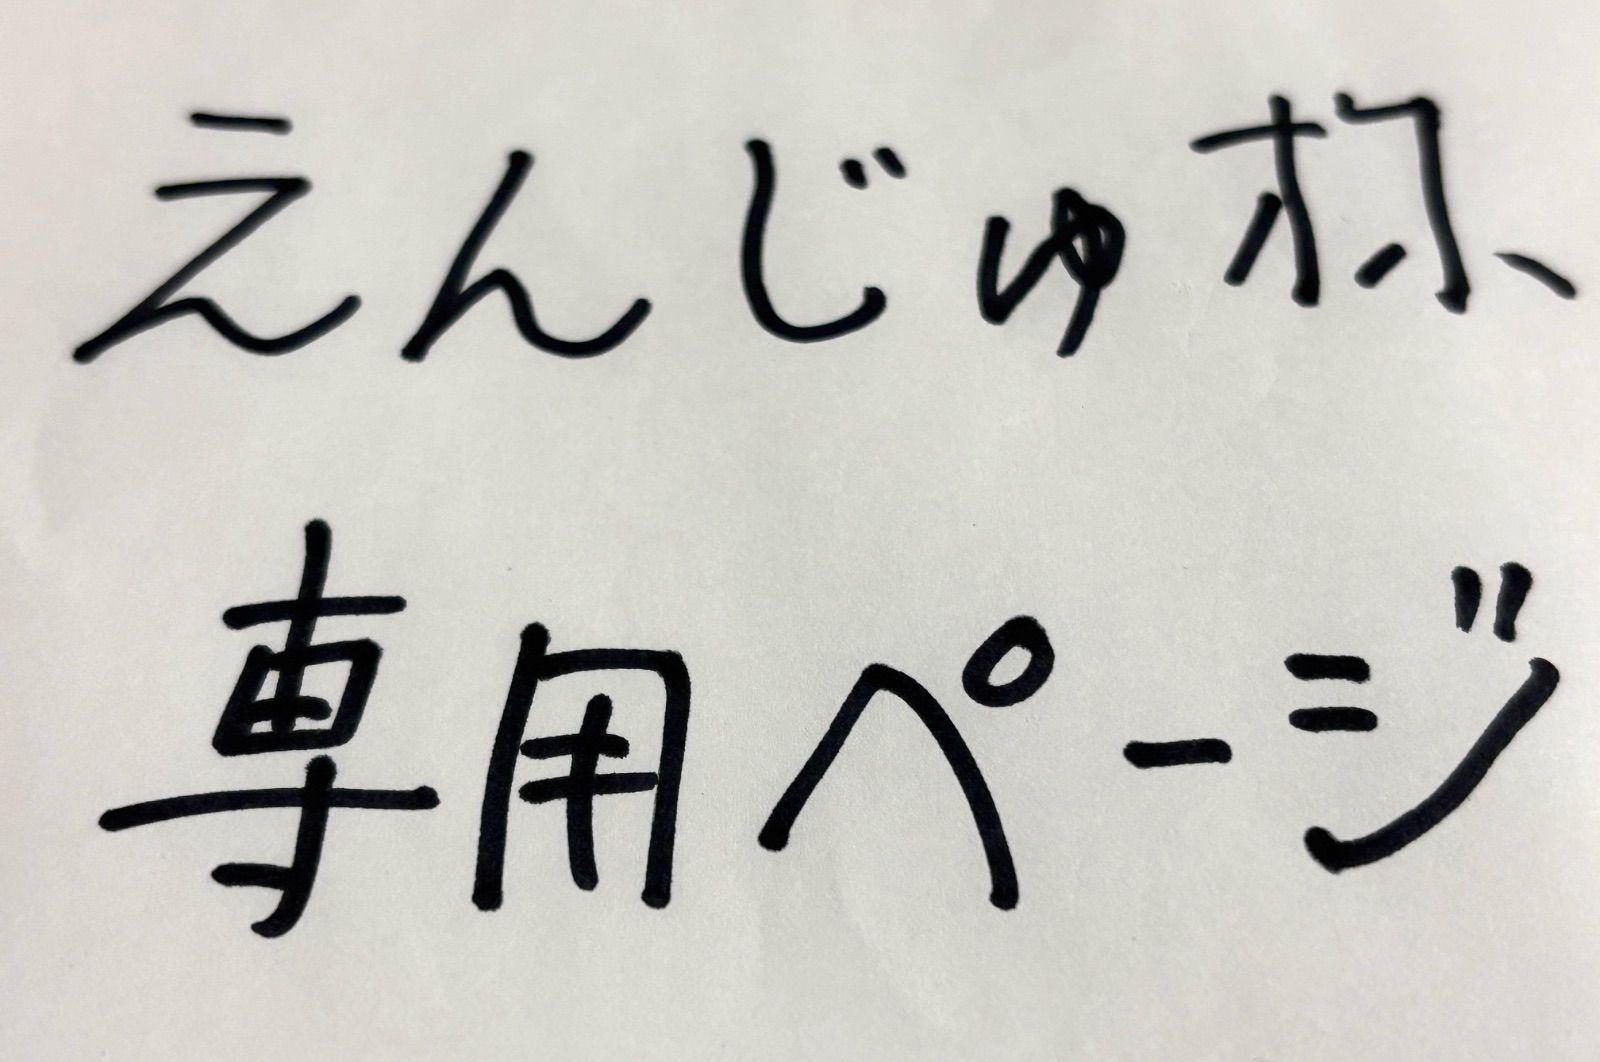 えんじゅ杯
専用ページ